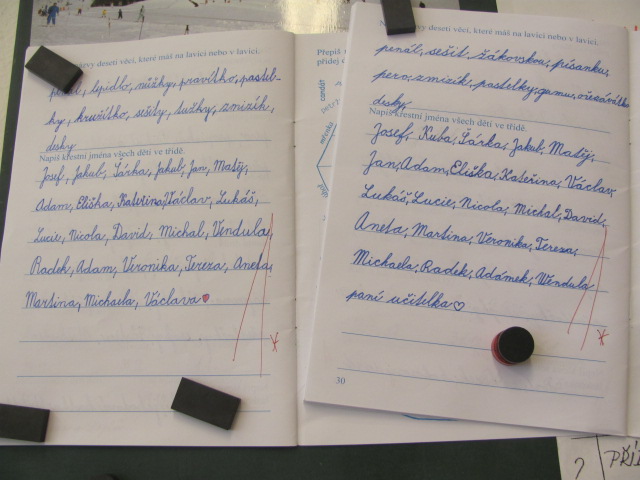 názvy deseti věcí, které máš na lavici nebo v lavici.
penál, lepidlo, nůžky, pravítko, pastel-
ky, kružítko, sešity, tužky, zmizík,
desky
Napiš křestní jména všech dětí ve třídě.
Josef, Jakub, Šárka, Jakub, Jan, Matěj,
Adam, Eliška, Kateřina, Václav, Lukáš,
Lucie, Nicola, David, Michal, Vendula,
Radek, Adam, Veronika, Tereza, Aneta,
Martina, Michaela, Václava
Přepiš
přidej
názvy deseti věcí, které máš na lavici nebo v lavici.
penál, sešit, žákovskou, písanku,
pero, zmizík, pastelky, gumu, ořezávítko
desky
Napiš křestní jména všech dětí ve třídě.
Josef, Kuba, Šárka, Jakub, Matěj,
Jan, Adam, Eliška, Kateřina, Václav,
Lukáš, Lucie, Nicola, Michal, David,
Aneta, Martina, Veronika, Tereza,
Michaela, Radek, Adámek, Vendula
paní učitelka
30
?